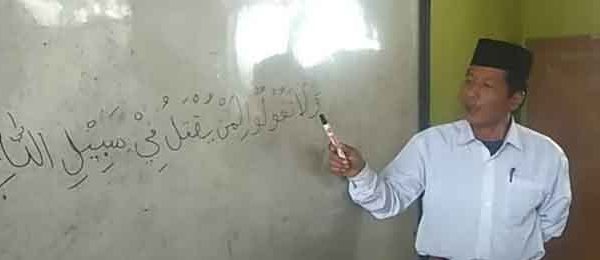 وَلَا تَقُوْلُوْا لِمَنْ يُقْتَلُ فِيْ سَبِيْلِ اللّٰهِ